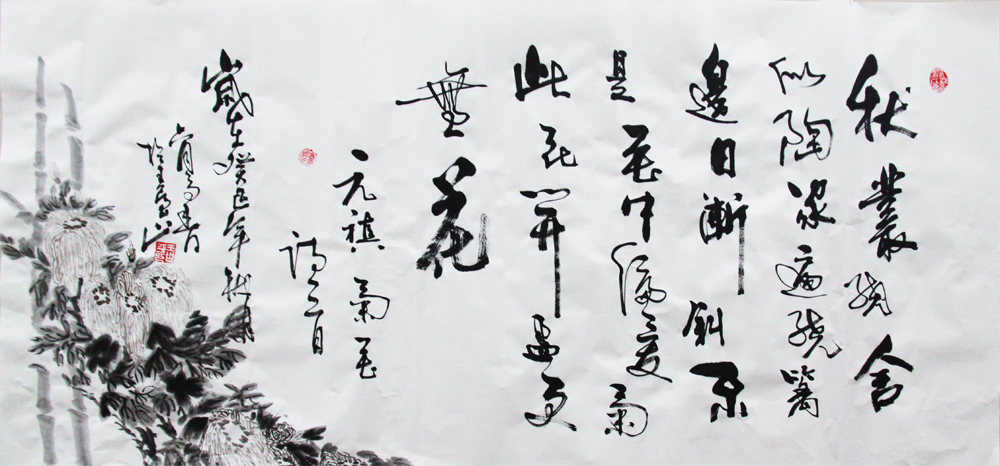 秋叢繞舍
似陶家遍繞籬
邊日漸斜不
是花中偏愛菊
此花開盡更
無花
元禛菊花
詩一首
歲在癸巳年秋月